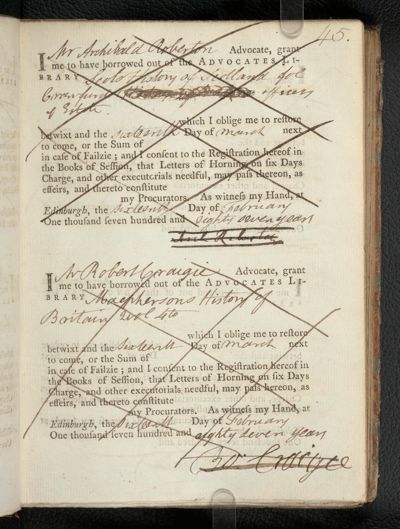 45.
I Mr Archibald Roberton Advocate, grant
me to have borrowed out of the ADVOCATES LI-
BRARY Scots History of Scotland fol
officers
of State
which I oblige me to restore
betwixt and the Sixteenth Day of March next
to come, or the Sum of
in case of Failzie; and I consent to the Registration hereof in
the Books of Session, that Letters of Horning on six Days
Charge, and other executorials needful, may pass thereon, as
effeirs, and thereto constitute
my Procurators. As witness my Hand, at
Edinburgh, the Sixteenth Day of February
One thousand seven hundred and eighty seven years
Arch Roberton
I Mr Robert Craigie Advocate, grant
me to have borrowed out of the ADVOCATES LI-
BRARY Macphersons History of
Britain 2 vol 4to
which I oblige me to restore
betwixt and the Sixteenth Day of March next
to come, or the Sum of
in case of Failzie; and I consent to the Registration hereof in
the Books of Session, that Letters of Horning on six Days
Charge, and other executorials needful, may pass hereon, as
effeirs, and thereto constitute
my Procurators. As witness my Hand, at
Edinburgh, the Sixteenth Day of February
One thousand seven hundred and eighty seven years
Ro: Craigie